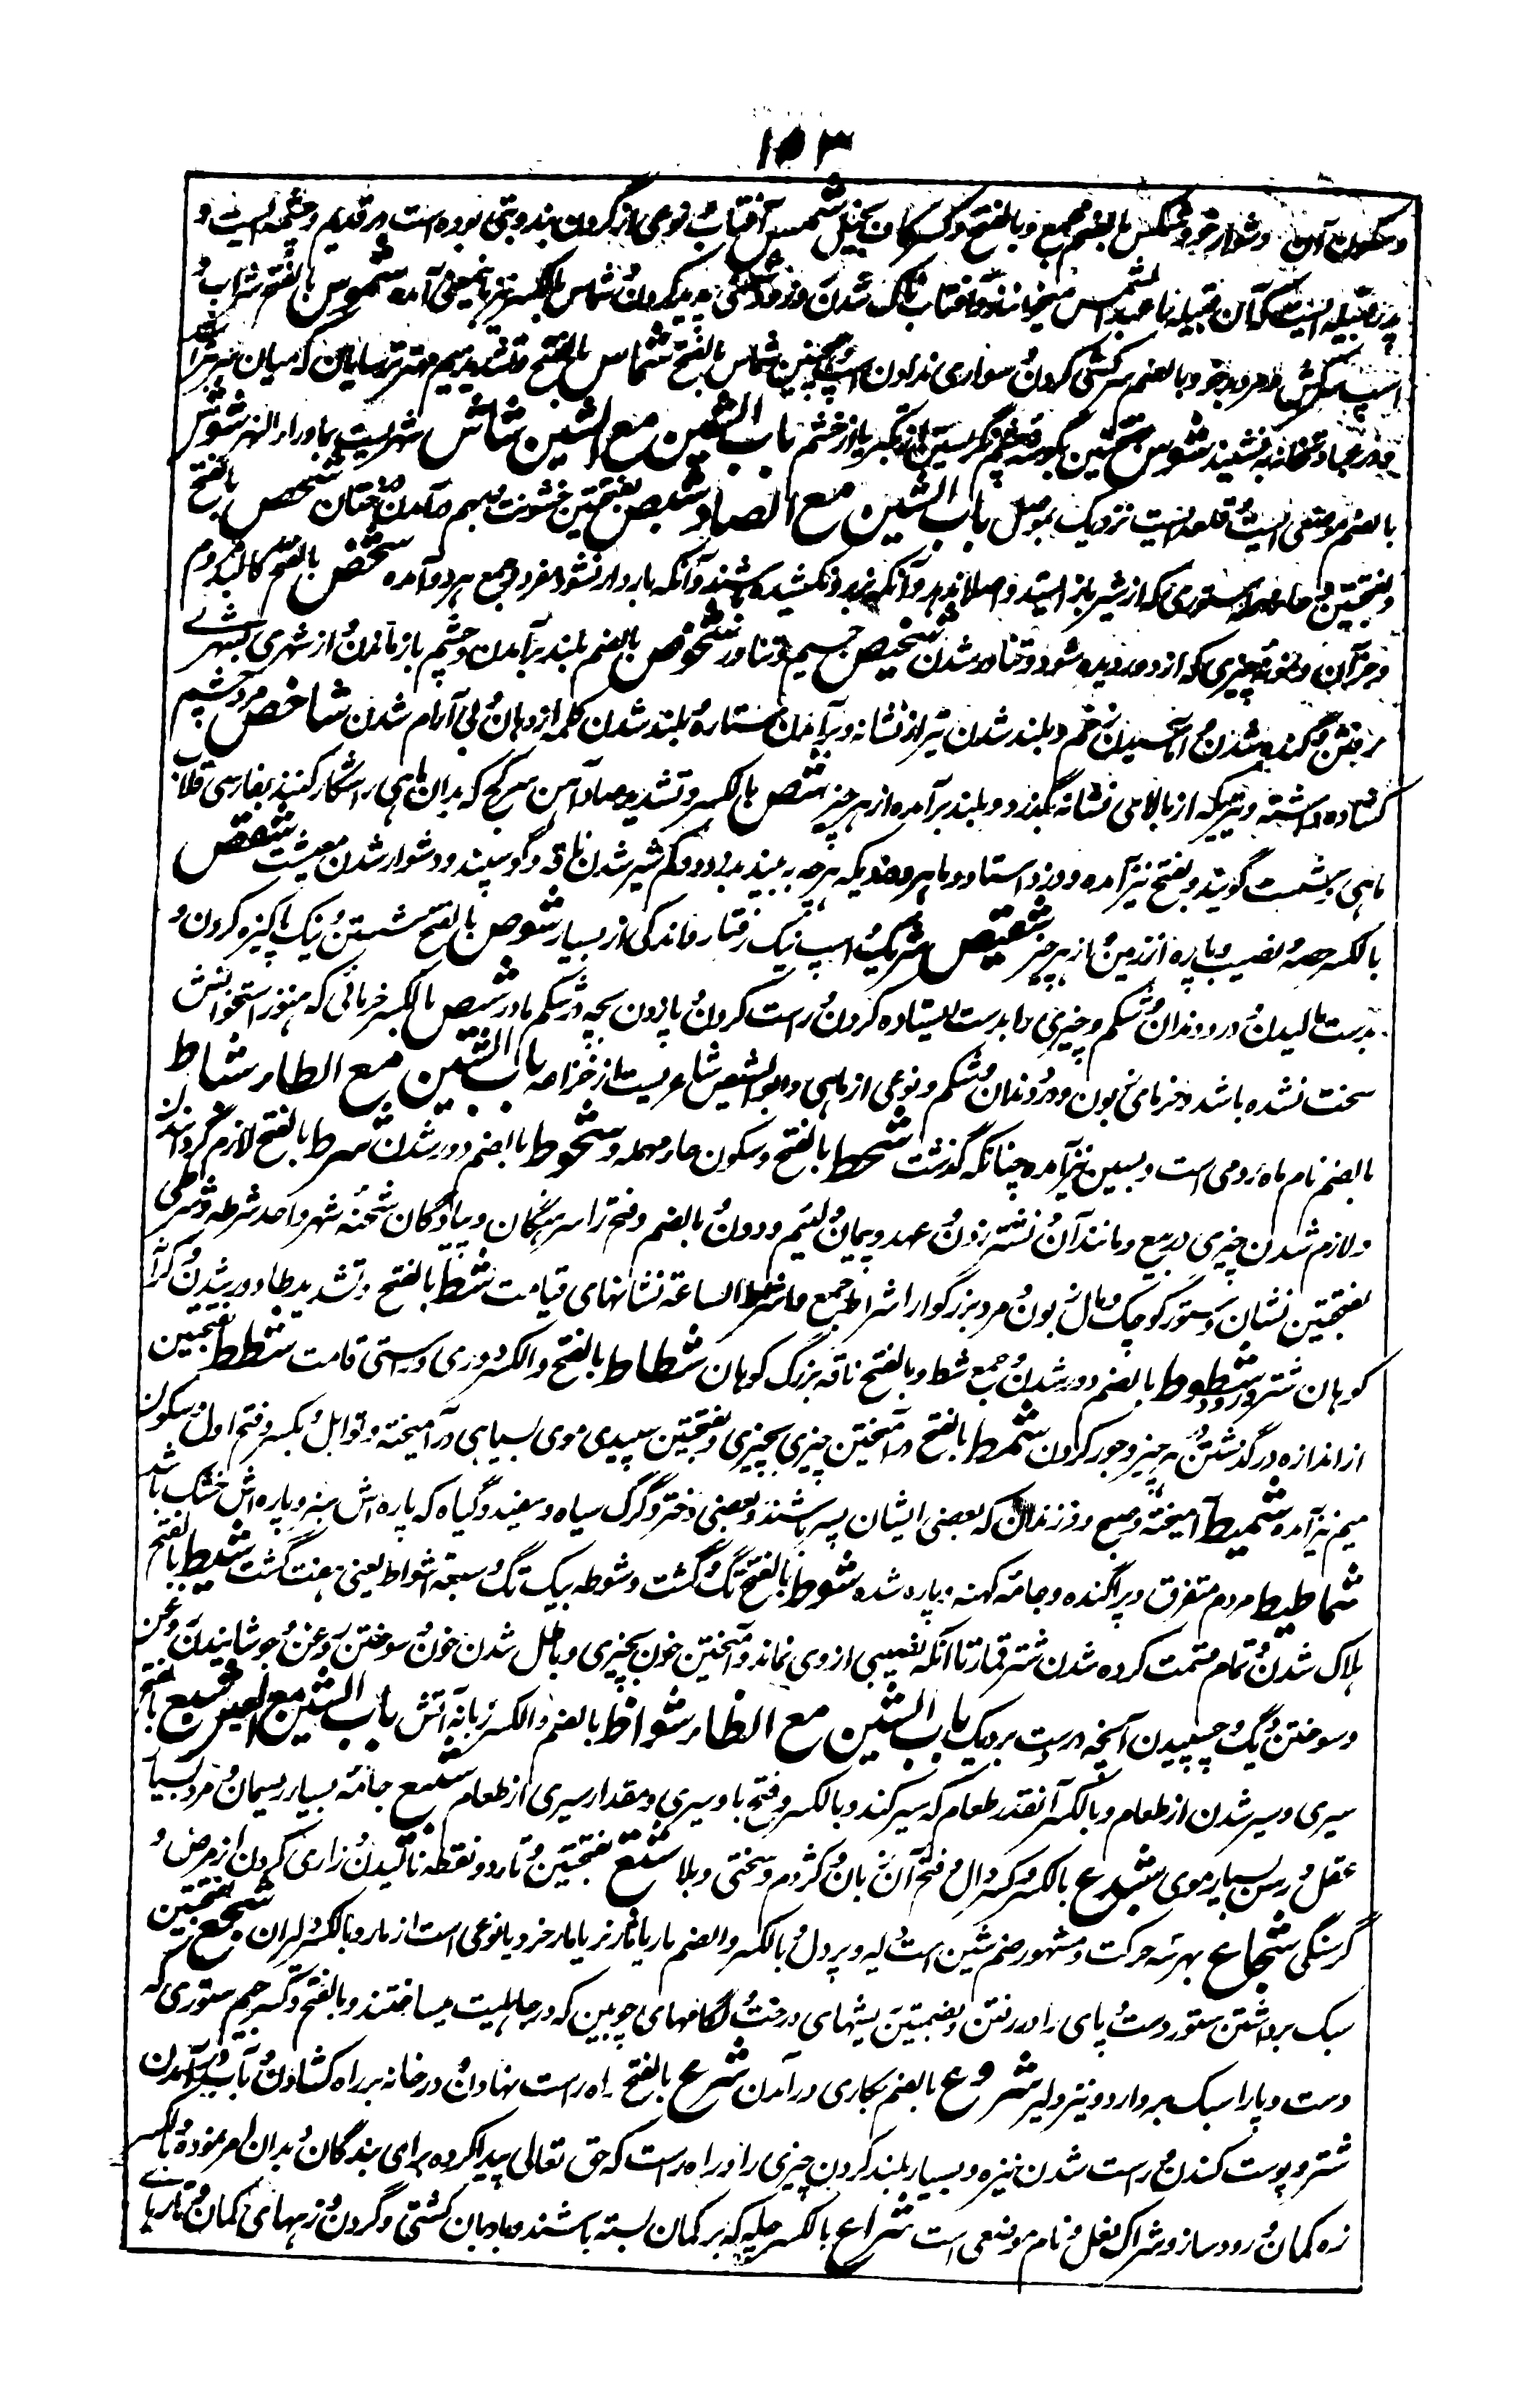 ۱۵۳
وسکون آن دشوار خو و شکس بالضم جمع و بالفتح و کسر کاف بخیل شمس آفتاب و نوعی از گردن بند و بتی بوده است در قدیم و چشمه ایست و
پدر قبیله ایست که آن قبیله را عبد الشمس میخوانند و آفتاب ناک شدن روز و دشمنی پدید کردن شماس بالکسر نیز بدینمعنی آمده شموس بالفتح شراب و
اسپ سرکش و مرد بدخو و بالضم سرکشی کردن و سواری ندادن اسپ همچنین شماس بالفتح شماس بالفتح و تشدید میم مهتر ترسایان که میان سر بتراشد
و در عبادتخانه نشیند شوس بفتحتین بگوشه چشم نگریستن از تکبر یا از خشم باب الشین مع الشین شاش شهریست بماوراء النهر شوش
بالضم موضعی است و قلعه ایست نزدیک بموصل باب الشین مع الصاد شبص بفتحتین خشونت و بهم در آمدن درختان شحص بالفتح
و بفتحتین و حاء مهمله ستوری که از شیر باز ایستد و اصلا ندهد و آنکه نر برو نکشیده باشند و آنکه باردار نشود مفرد و جمع هر دو آمده شخص بالفتح کالبد مردم
و جز آن و نمونه چیزی که از دور دیده شود و تناور شدن شخیص جسیم و تناور شخوص بالضم بلند برآمدن و چشم باز ماندن و از شهری بشهرے
رفتن و گنده شدن و آماسیدن زخم و بلند شدن تیر از نشانه و برآمدن ستاره و بلند شدن کلمه از دهان و بی آرام شدن شاخص مرد چشم
کشاده داشته و تیریکه از بالای نشانه بگذرد و بلند برآمده از هر چیز شص بالکسر و تشدید صاد آهن سر کج که بدان ماهی را شکار کنند بفارسی قلاب
ماهی و شست گویند و بفتح نیز آمده و دزد استاد و ماهر و دزدیکه هر چه به بیند بدزدد و کم شیر شدن ناقه و گوسپند و دشوار شدن معیشت شقص
بالکسر حصه و نصیب و پاره از زمین و از هر چیز شقیص شریک و اسپ نیک رفتار و اندکی از بسیار شوص بالفتح شستن و نیک پاکیزه کردن و
بدست مالیدن و درد دندان و شکم و چیزی را بدست ایستاده کردن و راست کردن و پا زدن بچه در شکم مادر شیص بالکسر خرمائی که هنوز استخوانش
سخت نشده باشد و خرمای زبون و درد دندان و شکم و نوعی از ماهی و ابو الشیص شاعریست از خزاعه باب الشین مع الطاء شباط
بالضم نام ماه رومی است و بسین نیز آمده چنانکه گذشت شحط بالفتح و سکون حاء مهمله و شحوط بالضم دور شدن شرط بالفتح لازم گردانیدن
و لازم شدن چیزی در بیع و مانند آن و نشتر زدن و عهد و پیمان و لئیم و دون و بالضم و فتح را سرهنگان و پیادگان شحنه شهر واحد شرطه و شرطی
بفتحتین نشان و ستور کوچک و مال زبون و مرد بزرگوار اشراط جمع اشراط الساعة نشانهای قیامت شط بالفتح و تشدید طا دور شدن و کرانه
کوهان شتر و رود شطوط بالضم دور شدن و جمع شط و بالفتح ناقه بزرگ کوهان شطاط بالفتح و الکسر دوری و راستی قامت شطط بفتحتین
از اندازه در گذشتن در هر چیز و جور کردن شمط بالفتح در آمیختن چیزی بچیزی و بفتحتین سپیدی موی بسیاهی در آمیخته و توابل و بکسر و فتح اول و سکون
میم نیز آمده شمیط آمیخته و صبح و فرزندان که بعضی ایشان پسر باشند و بعضی دختر و گرگ سیاه و سفید و گیاه که پاره اش سبز و پاره اش خشک باشد
شماطیط مردم متفرق و پراگنده و جامه کهنه و پاره شده شوط بالفتح تگ و گشت و شوطه یک تگ و سبعة اشواط یعنی هفت گشت شیط بالفتح
هلاک شدن و تمام قسمت کرده شدن شتر قمار تا آنکه نصیبی از وی نماند و آمیختن خون بچیزی و باطل شدن خون و سوختن روغن و جوشانیدن روغن
و سوختن دیگ و چسپیدن آنچه درست بر دیگ باب الشین مع الظاء شواظ بالضم و الکسر زبانه آتش باب الشین مع العین شبع بالفتح
سیری و سیر شدن از طعام و بالکسر آنقدر طعام که سیر کند و بالکسر و فتح با و سیری و مقدار سیری از طعام شبیع جامه بسیار ریسمان و مرد بسیار
عقل و رسن بسیار موی شبدع بالکسر و کسر دال و فتح آن زبان و کژدم و سختی و بلا شتع بفتحتین و تاء دو نقطه نالیدن و زاری کردن از مرض و
گرسنگی شجاع بهرسه حرکت و مشهور ضم شین است دلیر و پردل و بالکسر و الضم مار یا مار نر یا مار خرد یا نوعی است از مار و بالکسر دلیران شجع بفتحتین
سبک برداشتن ستور دست و پای را در رفتن و بضمتین بیشهای درخت و لگامهای چوبین که در جاهلیت میساختند و بالفتح و کسر جیم ستوری که
دست و پا را سبک بردارد و نیز دلیر شروع بالضم بکاری در آمدن شرع بالفتح راه راست نهادن و در خانه بر راه کشادن و بآب در آمدن
شتر و پوست کندن و راست شدن نیزه و بسیار بلند کردن چیزی را و راه راست که حق تعالی پیدا کرده برای بندگان و بدان امر نموده و بالکسر
زه کمان و رود ساز و شراک نعل و نام موضعی است شراع بالکسر چله که بر کمان بسته باشند و بادبان کشتی و گردن و زههای کمان و تارهاے